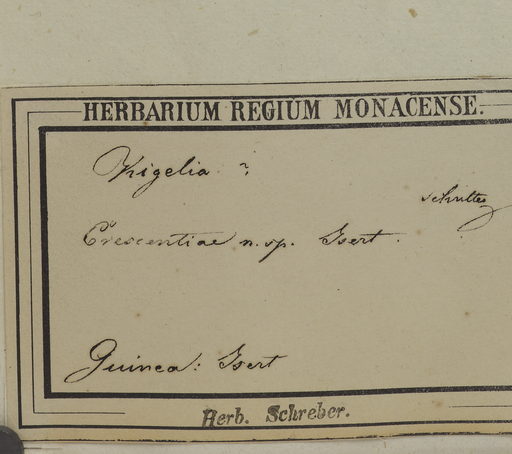 HERBARIUM REGIUM MONACENSE.
Kigelia ?
Schultes
Crescentiae n. sp. Isert.
Guinea: Isert
Herb. Schreber.